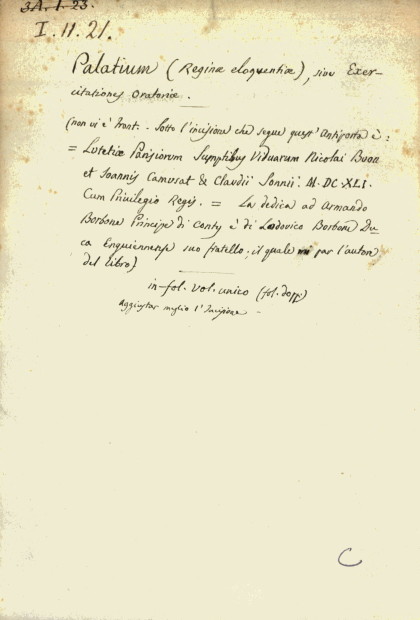 3A. I. 23.
I. 11. 21.
Palatium (Reginæ eloquentiæ), sive Exer-
citationes Oratoriæ.
(non vi è front. - Sotto l'incisione che segue quest'Antiporta è:
= Lutetiæ Parisiorum Sumptibus Viduarum Nicolai Buon
et Ioannis Camusat & Claudii Sonnii. M.DC.XLI.
Cum Privilegio Regis. = La dedica ad Armando
Borbone Principe di Conty è di Lodovico Borbone Du-
ca Enguiennense suo fratello; il quale par l'autore
del libro)
in-fol. vol. unico (fol. dopp.)
Aggiustar meglio l'Incisione -
C